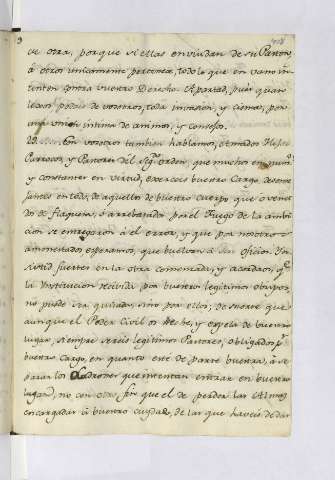 ce otra, porque si ellas enviudan de su Pastor,
à otros unicamente pertenece, todo lo que en vano in-
tenten contra vuestro Derecho. Apartad, pues quan
lexos podais de vosotros, toda invasion, y cisma, por
una union intima de animos, y consejos.
29. Con vosotros tambien hablamos, Amados Hijos
Parrocos, y Pastores del Sgdo. orden, que muchos en num.o
y constantes en virtud, exerceis vuestro Cargo, deseme
jantes en todo, de aquellos de vuestro cuerpo, que ò venci
dos de flaqueza, ò arrebatados por el Fuego de la ambi
cion se entregaron à el error, y que por nosotros
amonestados esperamos, que buelvan à su oficio. In
sistid fuertes en la obra comenzada, y acordaos, q.e
la Institucion recivida por vuestros legitimos obispos,
no puede ser quitada, sino por ellos; de suerte que
aunque el Poder Civil os heche, y expela de vuestro
lugar, siempre sereis legitimos Pastores, obligados p.r
vuestro Cargo, en quanto este de parte vuestra, à se
parar los Ladrones que intentan entrar en vuestro
lugar, no con otro fin que el de perder las Almas
encargadas à vuestro cuydado, de las que haveis de dar